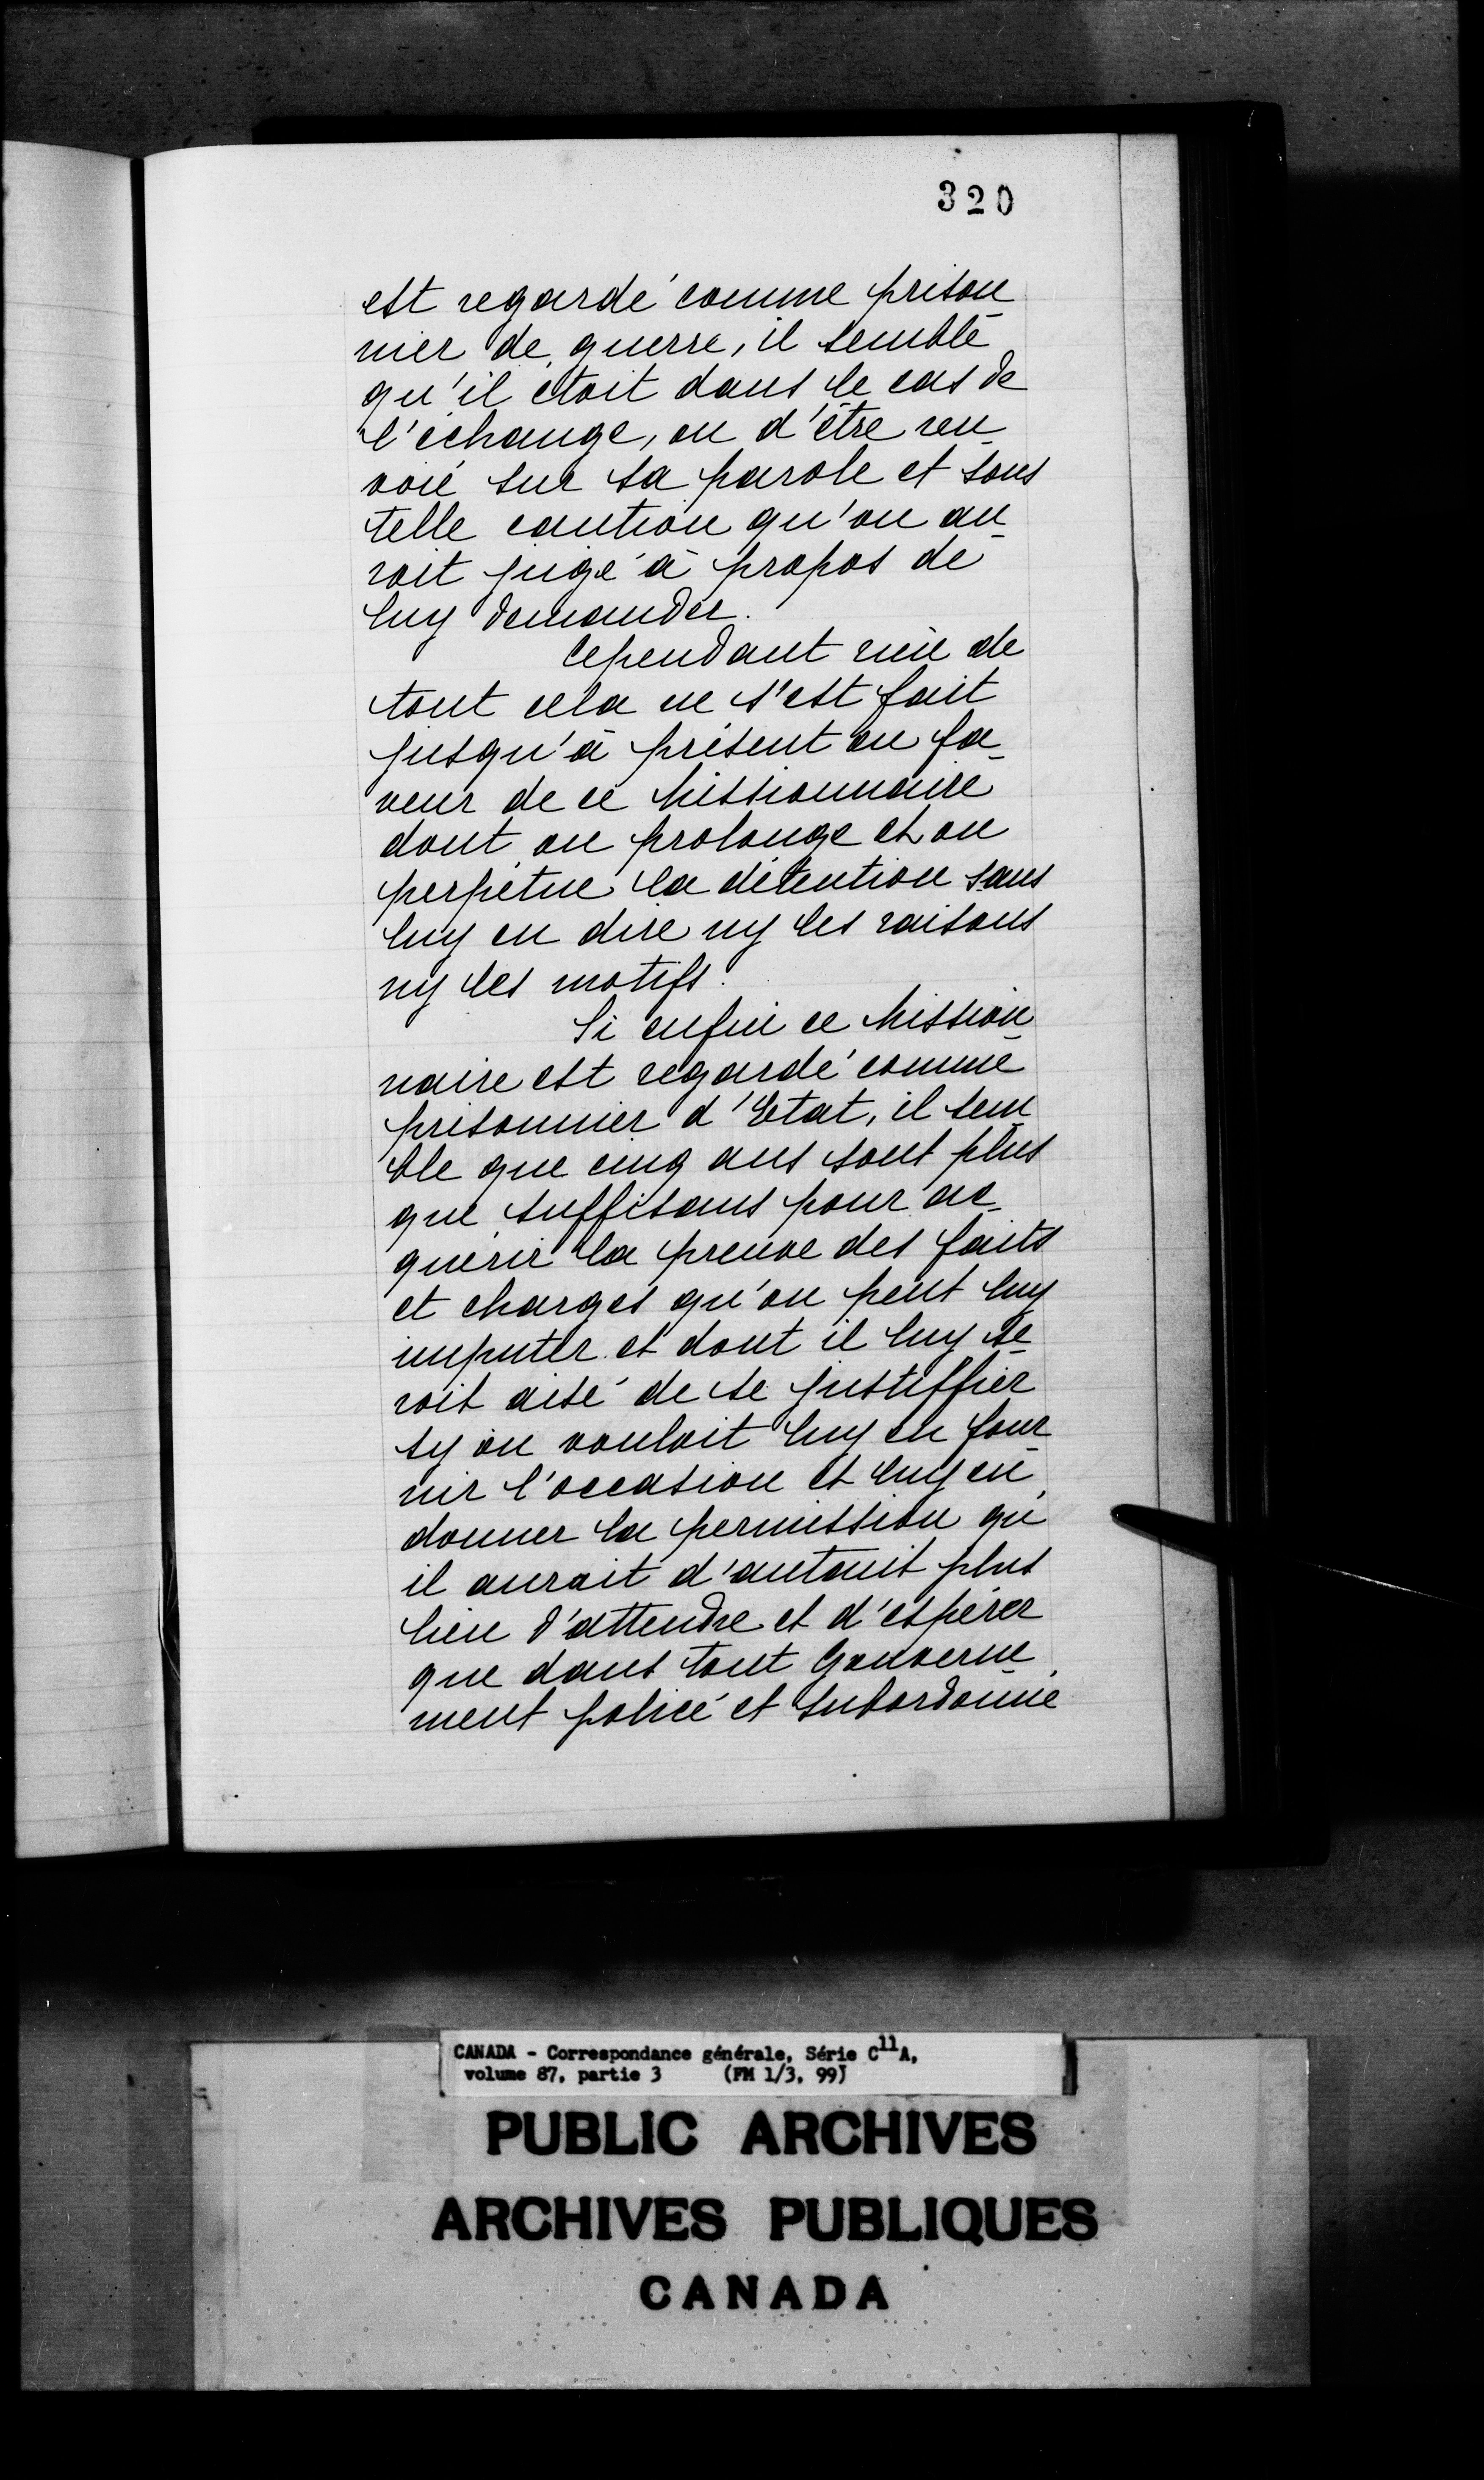 320
est regardé comme prison
nier de guerre, il semble
qu'il étoit dans le cas de
l'échange, ou d'être ren
voié sur sa parole et sous
telle caution qu'on au
roit jugé à propos de
luy demander.
Cependant rien de
tout cela ne s'est fait
jusqu'à présent en fa
veur de ce Missionnaire
dont on prolonge et on
perpétue la détention sans
luy en dire ny les raisons
ny les motifs.
Si enfin ce Mission
naire est regardé comme
prisonnier d'Etat, il sem
ble que cinq ans sont plus
que suffisans pour ac
quérir la preuve des faits
et charges qu'on peut luy
imputer et dont il luy se
roit aisé de se justiffier
sy on vouloit luy en four
nir l'occasion et luy en
donner la permission qu'
il aurait d'autant plus
lieu d'attendre et d'espérer
que dans tout Gouverne
ment policé et subordonné
CANADA - Correspondance générale, Série C11A,
volume 87, partie 3 (FM 1/3, 99)
PUBLIC ARCHIVES
ARCHIVES PUBLIQUES
CANADA